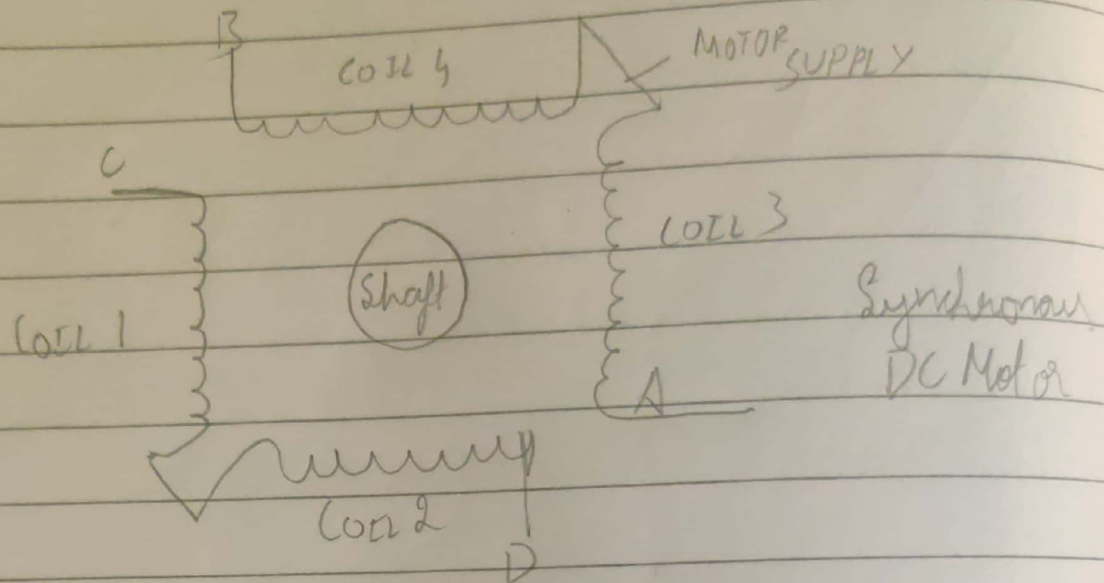 B
COIL 4
MOTOR
SUPPLY
C
COIL 3
Shaft
COIL 1
Synchronous
DC Motor
A
COIL 2
D